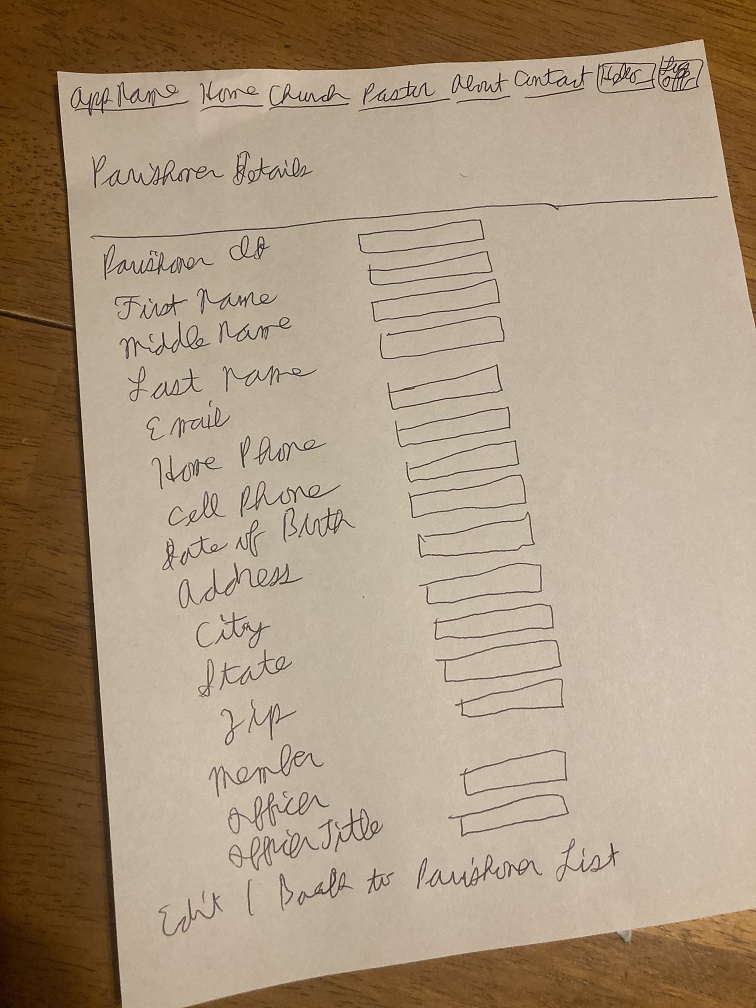 App Name Home Church Pastor About Contact Hello Log off
Parishoner Details
Parishoner Id
First Name
Middle Name
Last Name
Email
Home Phone
Cell Phone
Date of Birth
Address
City
State
Zip
Member
Officer
Officer Title
Edit | Back to Parishoner List